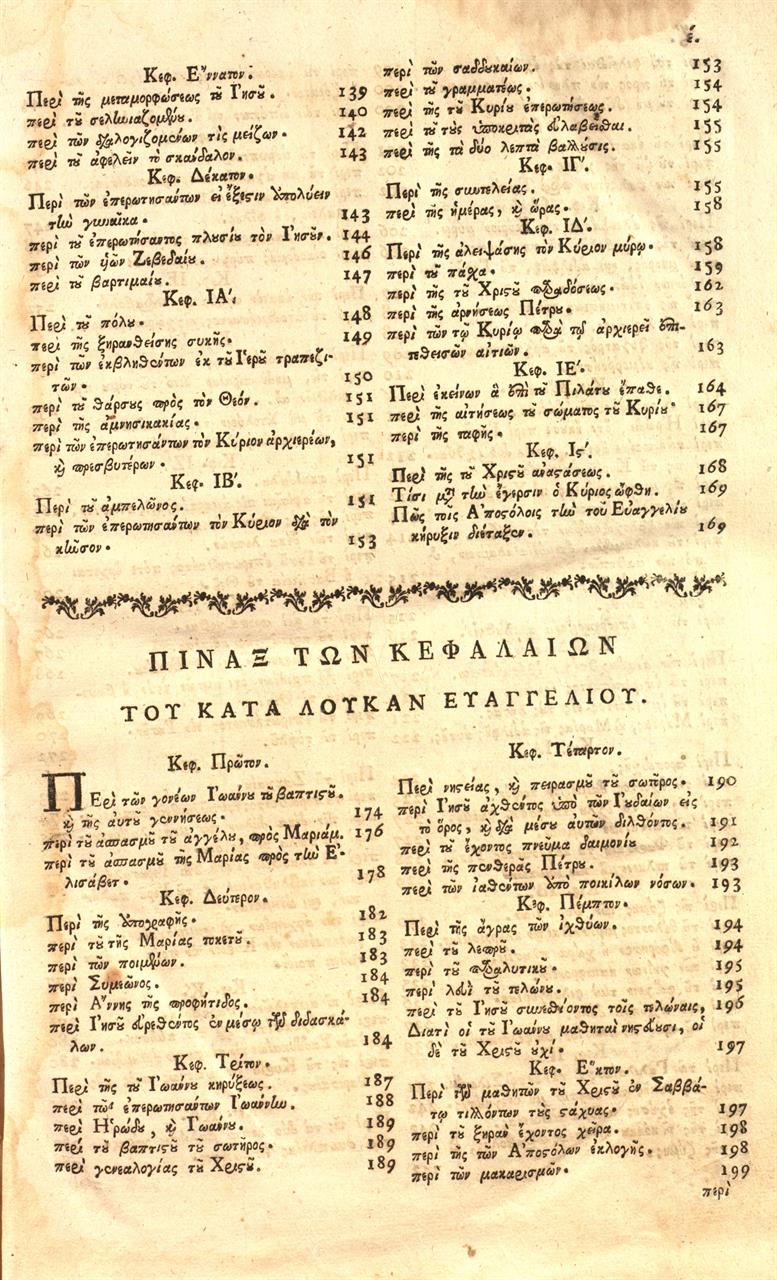 έ.
Κεφ. Εʹννατον.
Περὶ τῆς μεταμορφώσεως τȣ͂ Γησȣ͂. 139
περὶ τȣ͂ σεληνιαζομένȣ. 140
περὶ τῶν διαλογιζομένων τὶς μείζων. 142
περὶ τȣ͂ ἀφελεῖν τὸ σκάνδαλον. 143
Κεφ. Δέκατον.
Περὶ τῶν ἐπερωτησάντων εἰ ἔξεστιν ἀπολύειν
τὴν γυναῖκα. 143
περὶ τȣ͂ ἐπερωτήσαντος πλȣσίȣ τὸν Γησȣ͂ν. 144
περὶ τῶν ὑῶν Ζεβεδαίȣ. 146
περὶ τȣ͂ βαρτιμαίȣ. 147
Κεφ. ΙΑʹ.
Περὶ τȣ͂ πόλȣ. 148
περὶ τῆς ξηρανθείσης συκῆς. 149
περὶ τῶν ἐκβληθέντων ἐκ τȣ͂ Γερȣ͂ τραπεζι-
τῶν. 150
περὶ τȣ͂ θάρσȣς πρὸς τὸν Θεόν. 151
περὶ τῆς ἀμνησικακίας. 151
περὶ τῶν ἐπερωτησάντων τὸν Κύριον ἀρχιερέων,
ϗ πρεσβυτέρων. 151
Κεφ. ΙΒʹ.
Περὶ τȣ͂ ἀμπελῶνος. 151
περὶ τῶν ἐπερωτησάντων τὸν Κύριον διὰ τὸν
κῆνσον. 153
περὶ τῶν σαδδȣκαίων. 153
περὶ τȣ͂ γραμματέως. 154
περὶ τῆς τȣ͂ Κυρίȣ ἐπερωτήσεως. 154
περὶ τȣ͂ τȣ̀ς ὑποκριτὰς εὐλαβεῖσθαι. 155
περὶ τῆς τὰ δύο λεπτὰ βαλλȣ́σης. 155
Κεφ. ΙΓʹ.
Περὶ τῆς συντελείας. 155
περὶ τῆς ἡμέρας, ϗ ὥρας. 158
Κεφ. ΙΔʹ.
Περὶ τῆς ἀλειψάσης τὸν Κύριον μύρῳ. 158
περὶ τȣ͂ πάσχα. 159
περὶ τῆς τȣ͂ Χριστȣ͂ παραδόσεως. 162
περὶ τῆς ἀρνήσεως Πέτρȣ. 163
περὶ τῶν τῷ Κυρίῳ παρὰ τῷ ἀρχιερεῖ ἐπι-
τεθεισῶν αἰτιῶν. 163
Κεφ. ΙΕʹ.
Περὶ ἐκείνων ἃ ἐπὶ τȣ͂ Πιλάτȣ ἔπαθε. 164
περὶ τῆς αἰτήσεως τȣ͂ σώματος τȣ͂ Κυρίȣ. 167
περὶ τῆς ταφῆς. 167
Κεφ. Ιϛʹ.
Περὶ τῆς τȣ͂ Χριστȣ͂ ἀναστάσεως. 168
Τίσι μετὰ τὴν ἔγερσιν ὁ Κύριος ὤφθη. 169
Πῶς τοῖς Αʹποστόλοις τὴν τοῦ Εὐαγγελίȣ
κήρυξιν διέταξεν. 169
ΠΙΝΑΞ ΤΩΝ ΚΕΦΑΛΑΙΩΝ
ΤΟΥ ΚΑΤΑ ΛΟΥΚΑΝ ΕΥΑΓΓΕΛΙΟΥ.
Κεφ. Πρῶτον.
ΠΕρὶ τῶν γονέων Γωάννȣ τȣ͂ βαπτιστȣ͂.
ϗ τῆς αὐτȣ͂ γεννήσεως. 174
περὶ τȣ͂ ἀσπασμȣ͂ τȣ͂ ἀγγέλȣ, πρὸς Μαριάμ. 176
περὶ τȣ͂ ἀσπασμȣ͂ τῆς Μαρίας πρὸς τὴν Εʹ-
λισάβετ. 178
Κεφ. Δεύτερον.
Περὶ τῆς ἀπογραφῆς. 182
περὶ τȣ͂ τῆς Μαρίας τοκετȣ͂. 183
περὶ τῶν ποιμένων. 183
περὶ Συμεῶνος. 184
περὶ Αʹννης τῆς προφήτιδος. 184
περὶ Γησȣ͂ εὑρεθέντος ἐν μέσῳ τῶν διδασκά-
λων. 184
Κεφ. Τρίτον.
Περὶ τῆς τȣ͂ Γωάννȣ κηρύξεως. 187
περὶ τῶν ἐπερωτησάντων Γωάννην. 188
περὶ Ηʹρώδȣ, ϗ Γωάννȣ. 189
περὶ τȣ͂ βαπτιστȣ͂ τȣ͂ σωτῆρος. 189
περὶ γενεαλογίας τȣ͂ Χριστȣ͂. 189
Κεφ. Τέταρτον.
Περὶ νηστείας, ϗ πειρασμȣ͂ τȣ͂ σωτῆρος. 190
περὶ Γησȣ͂ ἀχθέντος ὑπὸ τῶν Γȣδαίων εἰς
τὸ ὄρος, ϗ διὰ μέσȣ αὐτῶν διελθόντος. 191
περὶ τȣ͂ ἔχοντος πνεῦμα δαιμονίȣ 192
περὶ τῆς πενθερᾶς Πέτρȣ. 193
περὶ τῶν ἰαθέντων ἀπὸ ποικίλων νόσων. 193
Κεφ. Πέμπτον.
Περὶ τῆς ἄγρας τῶν ἰχθύων. 194
περὶ τȣ͂ λεπρȣ͂. 194
περὶ τȣ͂ παραλυτικȣ͂. 195
περὶ λευὶ τȣ͂ τελώνȣ. 195
περὶ τȣ͂ Γησȣ͂ συνεσθίοντος τοῖς τελώναις, 196
Διατὶ οἱ τȣ͂ Γωάννȣ μαθηταὶ νηστεύȣσι, οἱ
δὲ τȣ͂ Χριστȣ͂ ȣ̓χί. 197
Κεφ. Εʹκτον.
Περὶ τῶν μαθητῶν τȣ͂ Χριστȣ͂ ἐν Σαββά-
τῳ τιλλόντων τȣ̀ς στάχυας. 197
περὶ τȣ͂ ξηρὰν ἔχοντος χεῖρα. 198
περὶ τῆς τῶν Αʹποστόλων ἐκλογῆς. 198
περὶ τῶν μακαρισμῶν. 199
περὶ